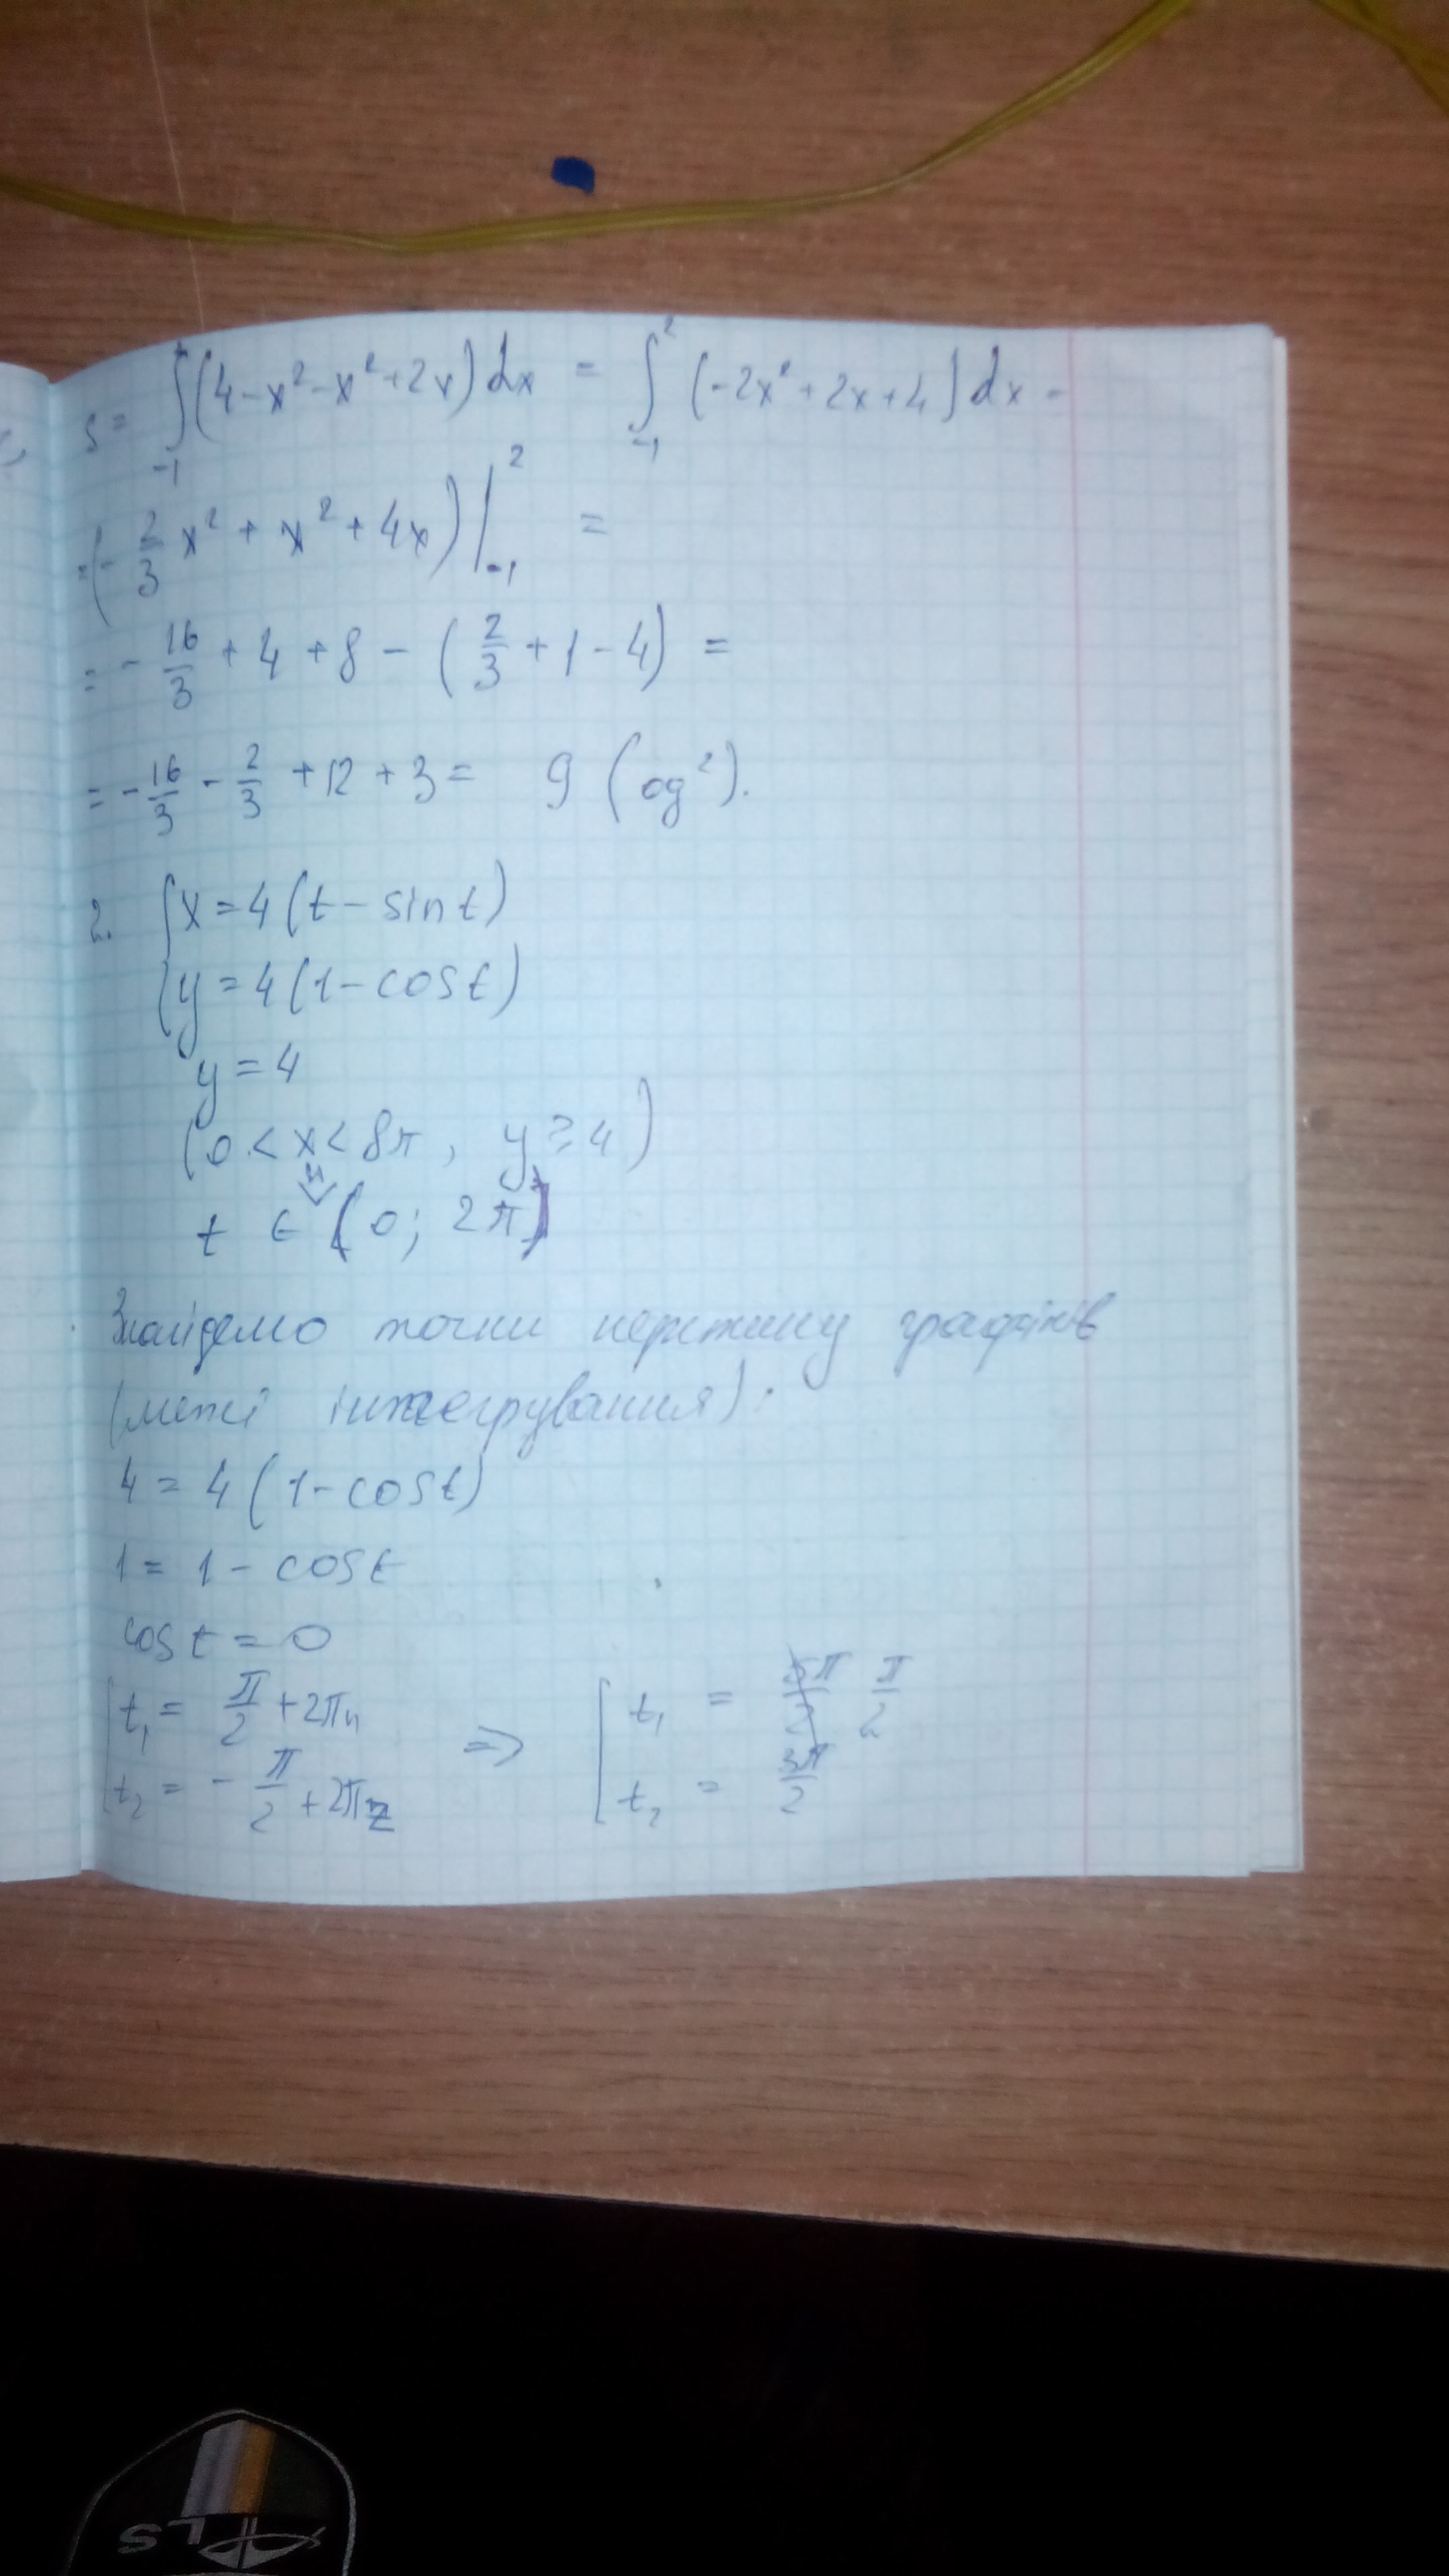 S = ∫₋₁ (4-x²-x²+2x)dx = ∫₋₁² (-2x²+2x+4)dx -
= (-2/3 x² + x² + 4x)|₋₁² =
= -16/3 + 4 + 8 - (2/3 + 1 - 4) =
= -16/3 - 2/3 + 12 + 3 = 9 (од²).
2. {x = 4(t - sin t)
{y = 4(1 - cos t)
y = 4
(0 < x < 8π, y ≥ 4)
t ∈ (0; 2π)
Знайдемо точки перетину графіків
(межі інтегрування):
4 = 4(1 - cos t)
1 = 1 - cos t
cos t = 0
[t₁ = π/2 + 2πn ⇒ [t₁ = π/2
[t₂ = -π/2 + 2πz [t₂ = 3π/2
ALS